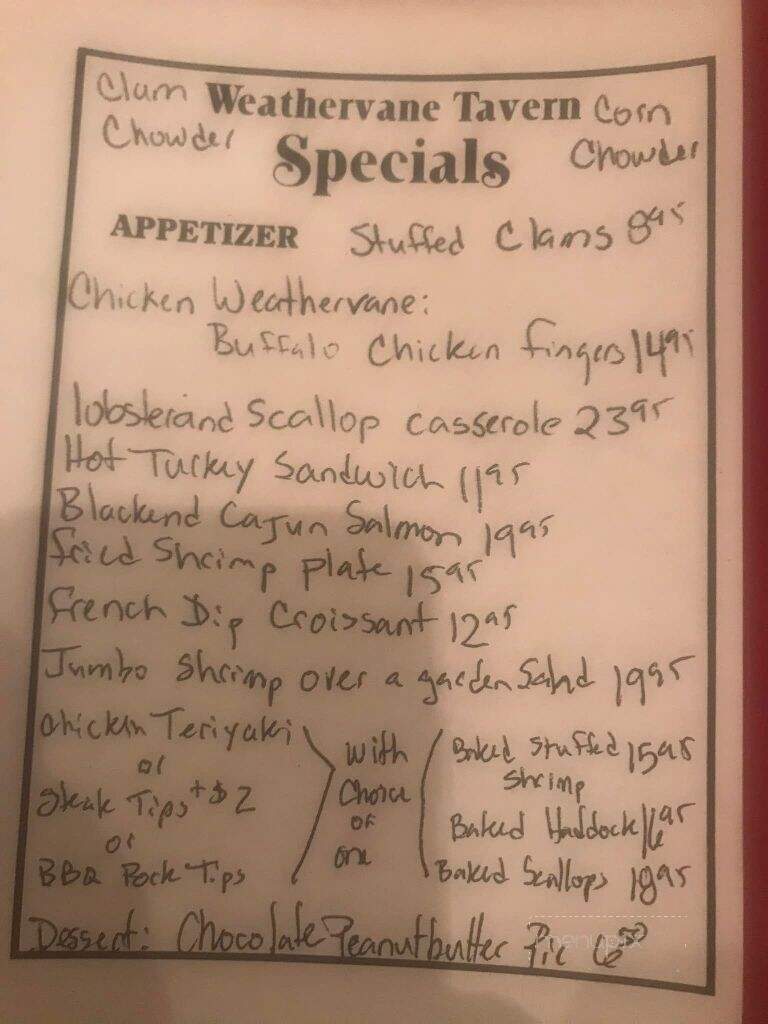 Clam Weathervane Tavern Corn
Chowder Specials Chowder
APPETIZER Stuffed Clams 895
Chicken Weathervane:
Buffalo Chicken fingers 1495
lobster and Scallop casserole 2395
Hot Turkey Sandwich 1195
Blackend Cajun Salmon 1995
fried Shrimp plate 1595
french Dip Croissant 1295
Jumbo Shrimp over a garden Salad 1995
Chicken Teriyaki
or
Steak Tips + $2
or
BBQ Pork Tips
with
Choice
of
one
Baked Stuffed 1595
Shrimp
Baked Haddock 1695
Baked Scallops 1895
Dessert: Chocolate Peanutbutter Pie 650
menupix